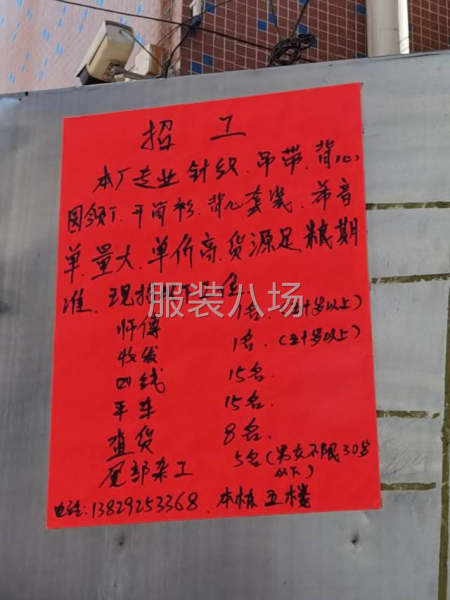 招工
本厂专业针织.吊带.背心
圆领T.开筒衫.背心套装.希音
单.量大.单价高.货源足粮期
准.现招
服装八场
师傅 1名.(五十岁以上)
收发 1名(五十岁以上)
四线 15名.
平车 15名.
查货 8名.
尾部杂工 5名(男女不限30岁
以下)
电话:13829253368.本栋五楼